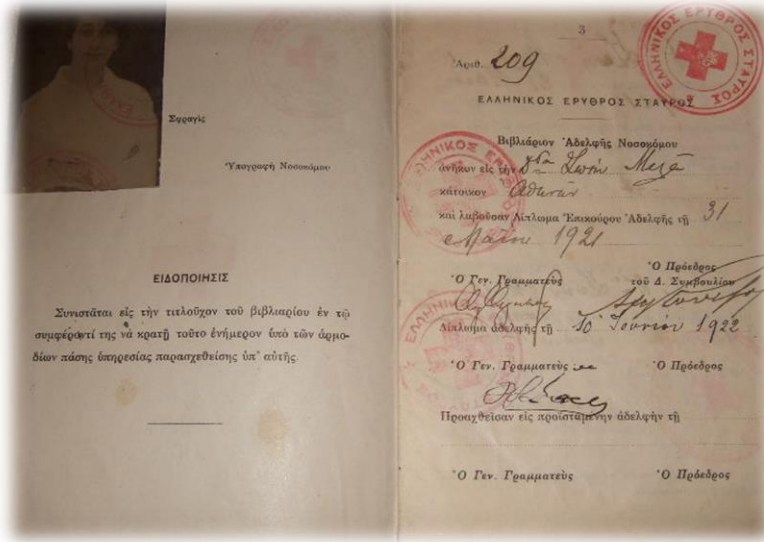 Σφραγὶς
Ὑπογραφὴ Νοσοκόμου
ΕΙΔΟΠΟΙΗΣΙΣ
Συνιστᾶται εἰς τὴν τιτλοῦχον τοῦ βιβλιαρίου ἐν τῷ
συμφέροντί της νὰ κρατῇ τοῦτο ἐνήμερον ὑπὸ τῶν ἁρμο-
δίων πάσης ὑπηρεσίας παρασχεθείσης ὑπ' αὐτῆς.
3
Ἀριθ. 209
ΕΛΛΗΝΙΚΟΣ ΕΡΥΘΡΟΣ ΣΤΑΥΡΟΣ
ΕΛΛΗΝΙΚΟΣ ΕΡΥΘΡΟΣ ΣΤΑΥΡΟΣ
Βιβλιάριον Ἀδελφῆς Νοσοκόμου
ἀνῆκον εἰς τὴν δδα Ζωήν Μελᾶ
κάτοικον Ἀθηνῶν
καὶ λαβοῦσαν Δίπλωμα Ἐπικούρου Ἀδελφῆς τῇ 31
Μαΐου 1921
Ὁ Γεν. Γραμματεὺς
Ὁ Πρόεδρος
τοῦ Δ. Συμβουλίου
Δίπλωμα ἀδελφῆς τῇ 10 Ἰουνίου 1922
Ὁ Γεν. Γραμματεὺς Ὁ Πρόεδρος
Προαχθεῖσαν εἰς προϊσταμένην ἀδελφὴν τῇ
Ὁ Γεν. Γραμματεὺς Ὁ Πρόεδρος